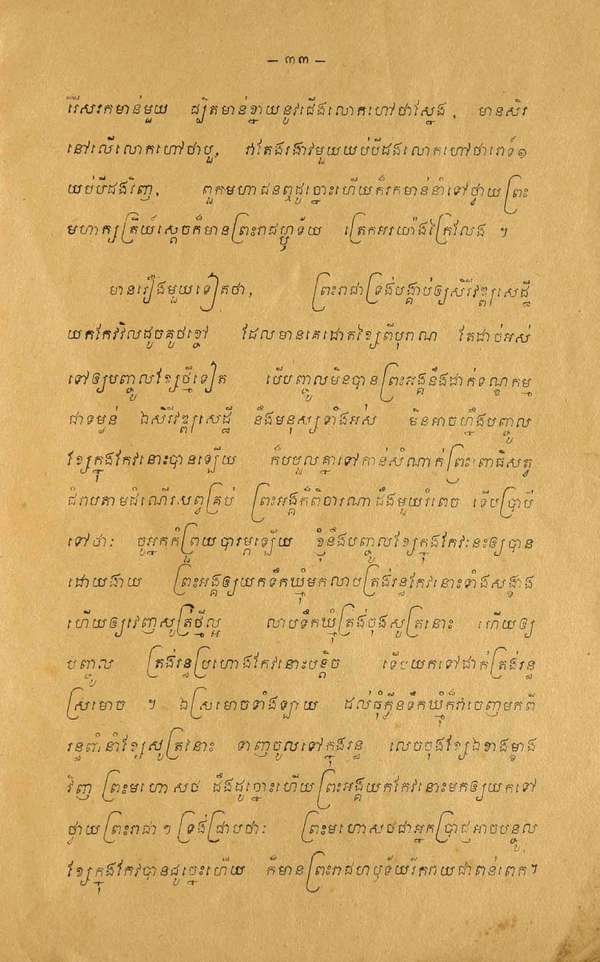 — ៣៣ —
រើសរកមាន់មួយ ដ្បិតមាន់ខ្វាយនូវជើងលោកហៅថាស្នែង, មានសិរ
នៅលើលោកហៅថាបូ, វាតែងរងាវមួយយប់បីដងលោកហៅថារោទ៍១
យប់បីដងវិញ, ពួកមហាជនឮដូច្នោះហើយក៏រកមាន់នាំទៅថ្វាយព្រះ
មហាក្សត្រីយ៍ស្តេចក៏មានព្រះរាជហ្ឫទ័យ ត្រេកអរយ៉ាងក្រៃលែង ។
មានរឿងមួយទៀតថា, ព្រះរាជាទ្រង់បង្គាប់ឲ្យសិរីវឌ្ឍសេដ្ឋី
យកកែវវិលដូចគូថខ្ចៅ ដែលមានគេដោតខ្សែពីបុរាណ តែដាច់អស់
ទៅឲ្យបញ្ចូលខ្សែថ្មីទៀត បើបញ្ចូលមិនបានព្រះអង្គនឹងដាក់ទណ្ឌកម្ម
ជាទម្ងន់ ឯសិរីវឌ្ឍសេដ្ឋី នឹងមនុស្សទាំងអស់ មិនអាចហ្នឹងបញ្ចូល
ខ្សែក្នុងកែវនោះបានឡើយ ក៏បបួលគ្នាទៅកាន់សំណាក់ព្រះពោធិសត្វ
ជំរាបតាមដំណើរសព្វគ្រប់ ព្រះអង្គក៏ពិចារណាដឹងមួយរំពេច ទើបប្រាប់
ទៅថាៈ ចូរអ្នកកុំព្រួយបារម្ភឡើយ ខ្ញុំនឹងបញ្ចូលខ្សែក្នុងកែវនេះឲ្យបាន
ដោយងាយ ព្រះអង្គឲ្យយកទឹកឃ្មុំមកលាបត្រង់រន្ធកែវនោះទាំងសង្ខាង
ហើយឲ្យវេញសូត្រថ្មីល្អ លាបទឹកឃ្មុំត្រង់ចុងសូត្រនោះ ហើយឲ្យ
បញ្ចូល ត្រង់រន្ធប្រហោងកែវនោះបន្តិច ទើបយកទៅដាក់ត្រង់រន្ធ
ស្រមោច ។ ឯស្រមោចទាំងឡាយ ដល់ធុំក្លិនទឹកឃ្មុំក៏វាចេញមកពី
រន្ធពាំនាំខ្សែសូត្រនោះ ទាញចូលទៅក្នុងរន្ធ លេចចុងខ្សែឯខាងម្ខាង
វិញ ព្រះមហោសថ ដឹងដូច្នោះហើយព្រះអង្គយកកែវនោះមកឲ្យយកទៅ
ថ្វាយព្រះរាជា ។ ទ្រង់ជ្រាបថាៈ ព្រះមហោសថជាអ្នកប្រាជ្ញអាចបន្ចូល
ខ្សែក្នុងកែវបានដូច្នេះហើយ ក៏មានព្រះរាជហឫទ័យរីករាយជាពន់ពេក។